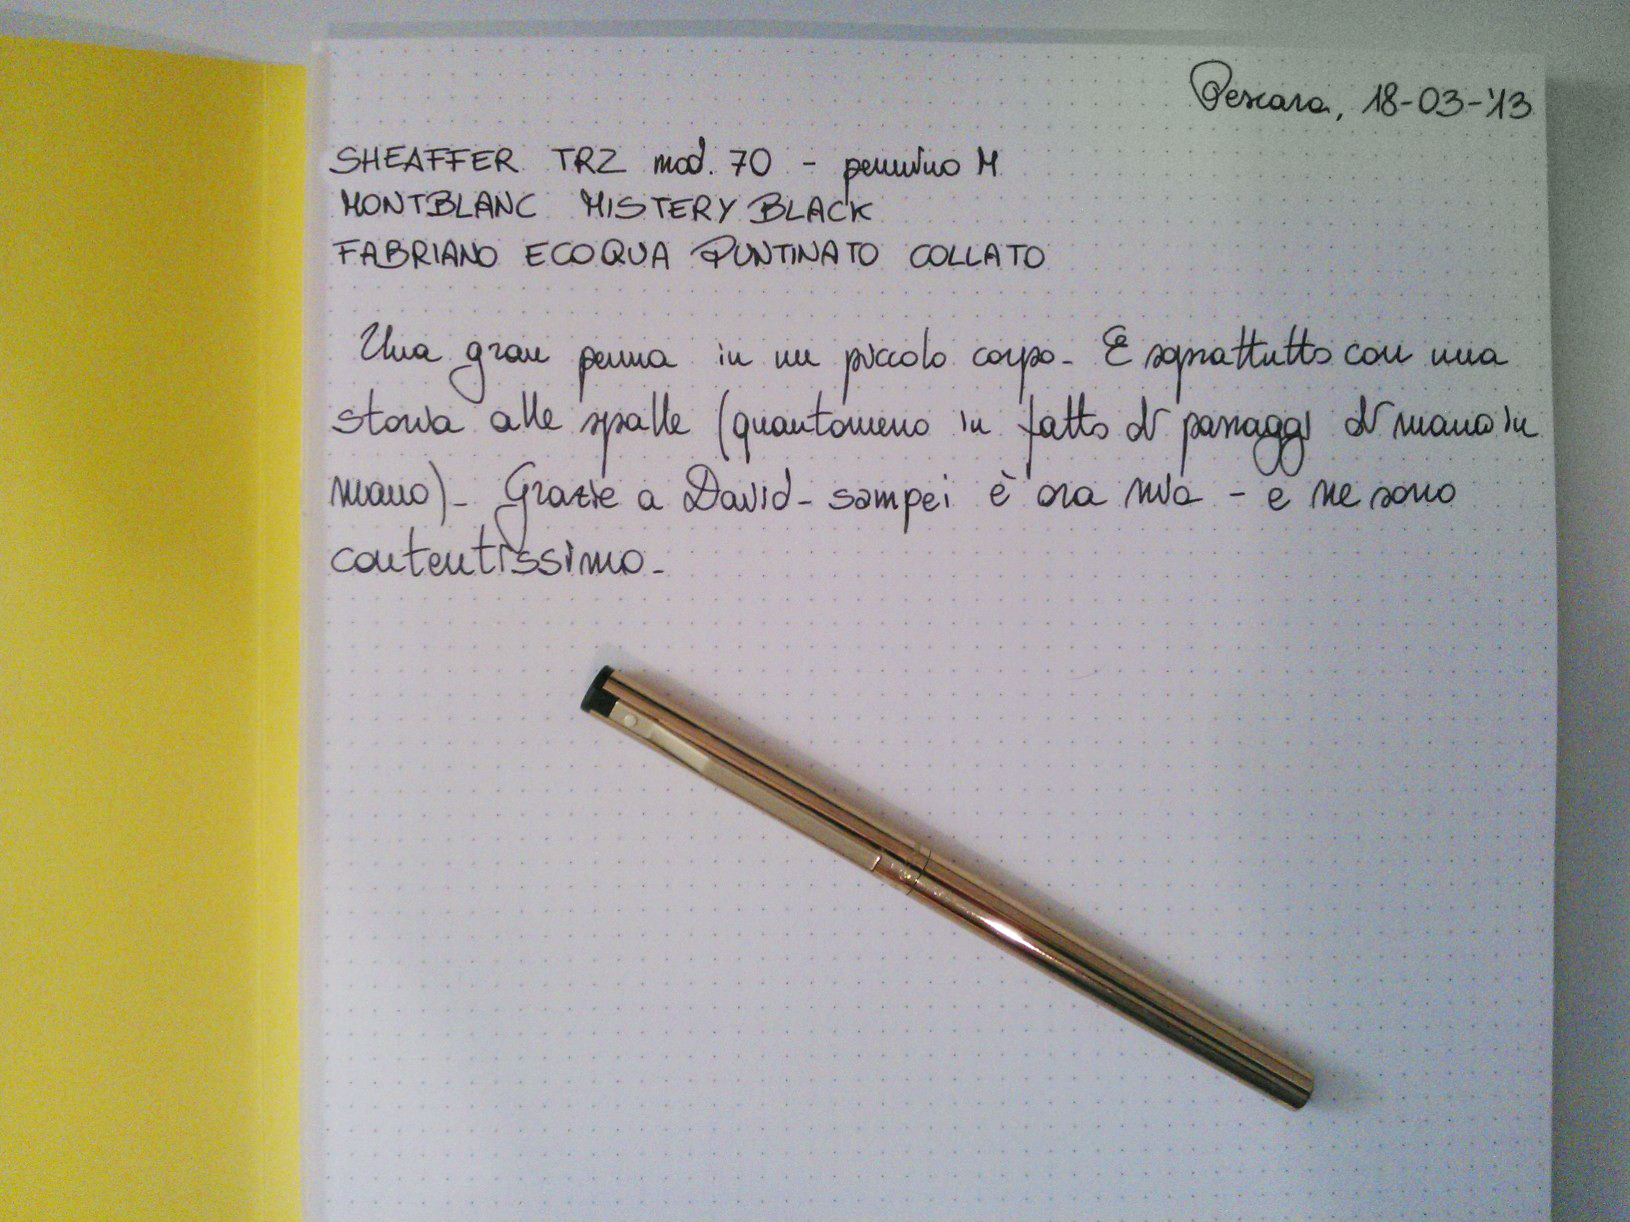 Pescara, 18-03-'13
SHEAFFER TRZ mod. 70 - pennino M
MONTBLANC MISTERY BLACK
FABRIANO ECOQUA PUNTINATO COLLATO
Una gran penna in un piccolo corpo. E soprattutto con una
storia alle spalle (quantomeno in fatto di passaggi di mano in
mano). Grazie a David-sampei è ora mia - e ne sono
contentissimo.